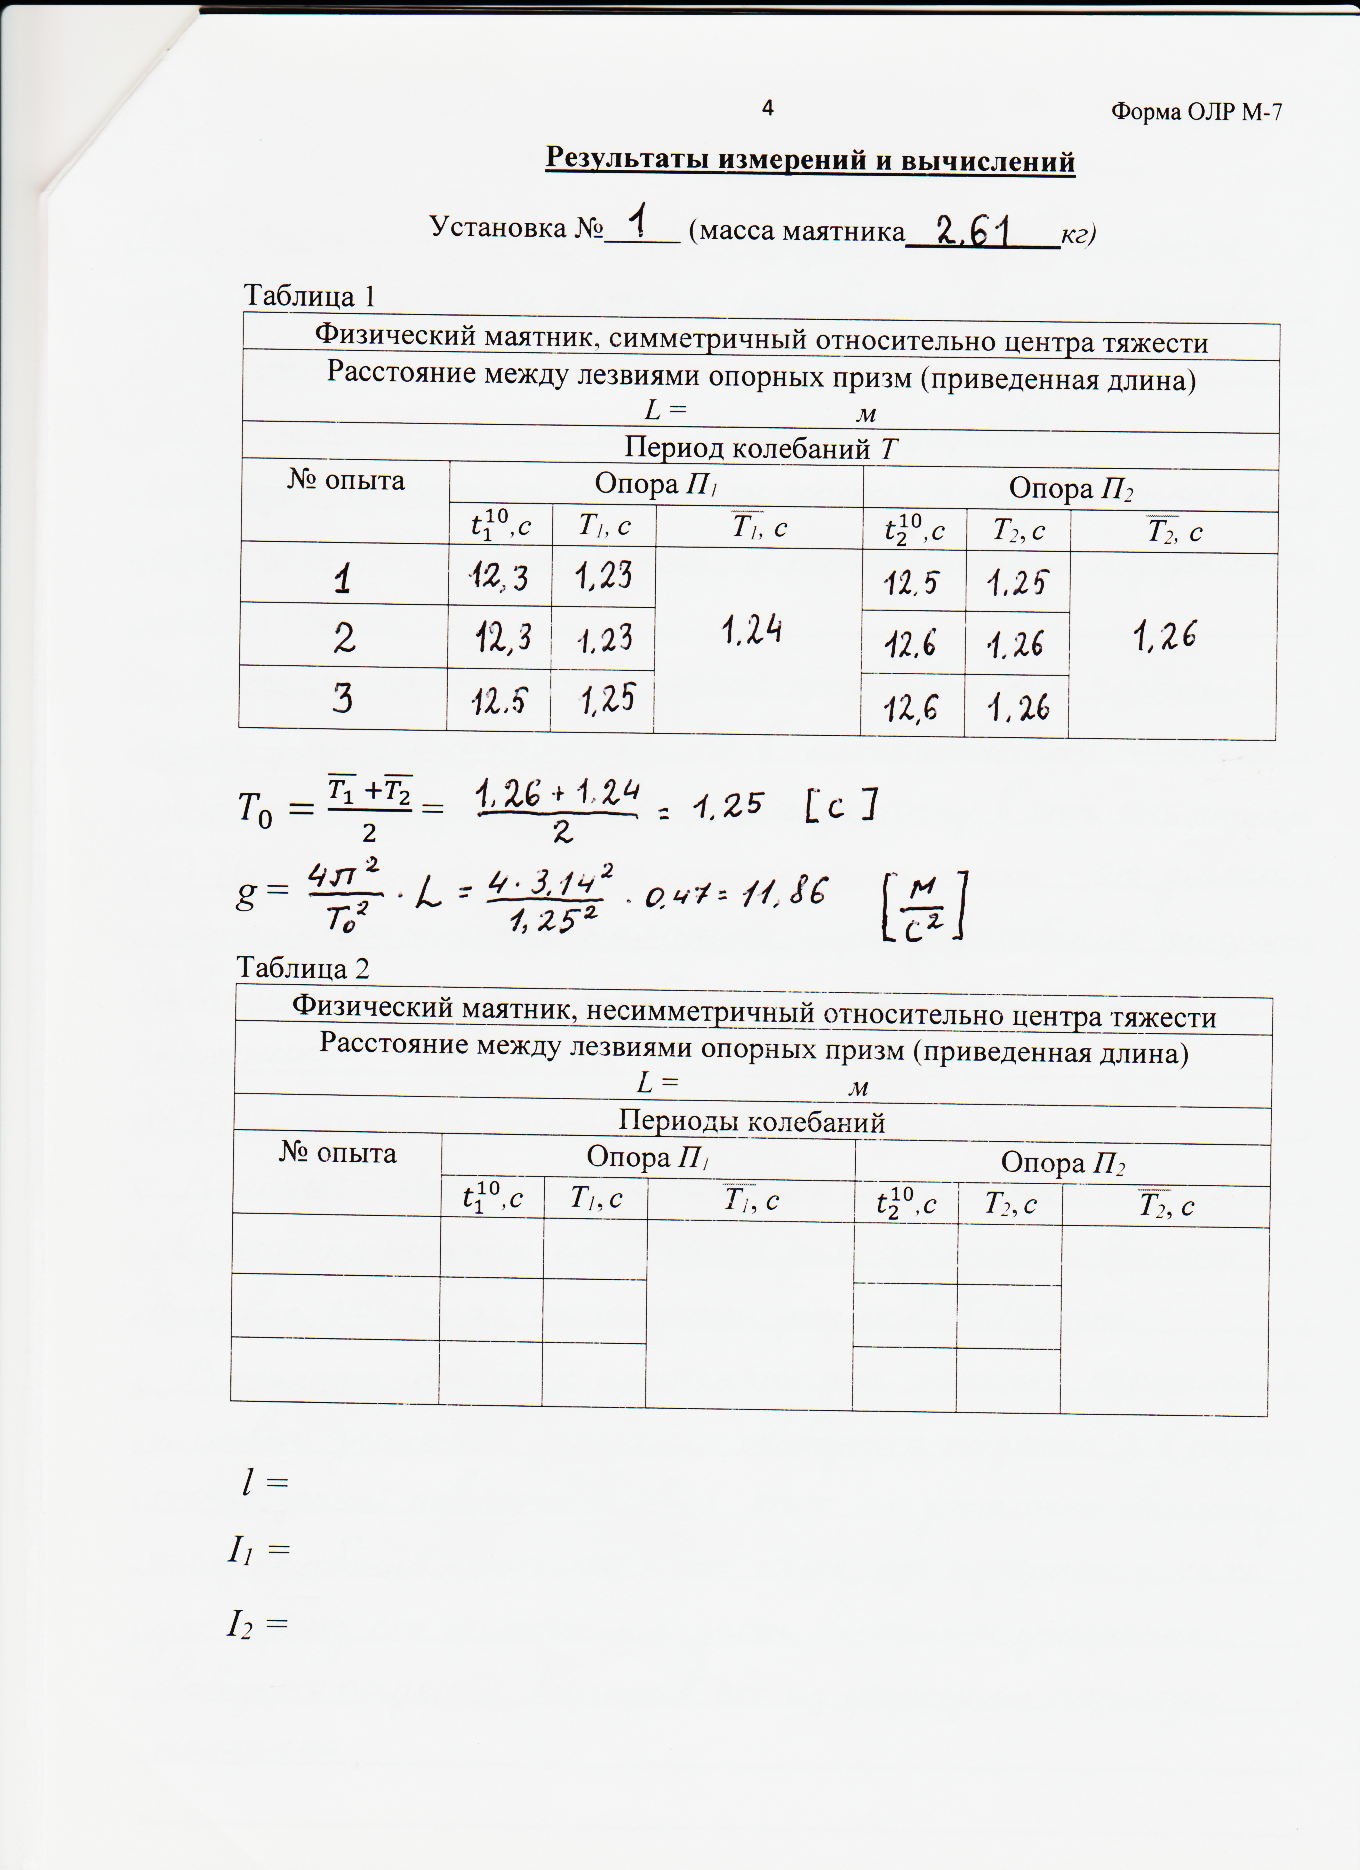 4
Форма ОЛР М-7
Результаты измерений и вычислений
Установка № 1 (масса маятника 2.61 кг)
Таблица 1
Физический маятник, симметричный относительно центра тяжести
Расстояние между лезвиями опорных призм (приведенная длина)
L = м
Период колебаний T
№ опыта Опора П₁ Опора П₂
t₁¹⁰,с T₁, с T̅₁, с t₂¹⁰,с T₂, с T̅₂, с
1 12,3 1,23 12.5 1.25
2 12,3 1.23 1.24 12.6 1.26 1,26
3 12.5 1,25 12,6 1.26
T₀ = (T̅₁ + T̅₂)/2 = (1,26 + 1.24)/2 = 1.25 [с]
g = 4π²/T₀² · L = 4·3,14²/1,25² · 0,47 = 11,86 [м/с²]
Таблица 2
Физический маятник, несимметричный относительно центра тяжести
Расстояние между лезвиями опорных призм (приведенная длина)
L = м
Периоды колебаний
№ опыта Опора П₁ Опора П₂
t₁¹⁰,с T₁, с T̅₁, с t₂¹⁰,с T₂, с T̅₂, с
l =
I₁ =
I₂ =